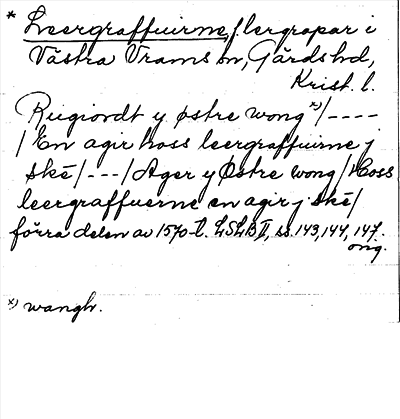 * Leergraffuirne, lergropar i
Västra Vrams sn, Gärds hd,
Krist. l.
Rugiordt y østre wong x)/----
/En agir hoss leergraffuirne j
skê/---/Ager y Østre wong/Hoss
leergraffuerne en agir j skê/
förra delen av 1570-t. LSLB II, ss. 143, 144, 147.
orig.
x) wangh.